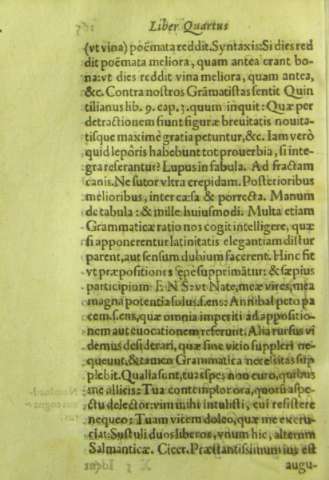 Liber Quartus
(vt vina) poëmata reddit. Syntaxis: Si dies red
dit poëmata meliora, quam antea erant bo-
na: vt dies reddit vina meliora, quam antea,
&c. Contra nostros Grãmatistas sentit Quin
tilianus lib. 9. cap. 3. quum inquit: Quæ per
detractionem fiunt figuræ breuitatis nouita-
tisque maximè gratia petuntur, &c. Iam verò
quid lepôris habebunt tot prouerbia, si inte-
gra referantur? Lupus in fabula. Ad fractam
canis. Ne sutor vltra crepidam. Posterioribus
melioribus, inter cæsa & porrecta. Manum
de tabula: & mille huiusmodi. Multa etiam
Grammaticæ ratio nos cogit intelligere, quæ
si apponerentur latinitatis elegantiam distur
parent, aut sensum dubium facerent. Hinc fit
vt præpositiones sæpe supprimãtur: & sæpius
participium ENS: vt Nate, meæ vires, mea
magna potentia solus. s. ens: Annibal peto pa
cem. s. ens, quæ omnia imperiti ad appositio-
nem aut euocationem referunt. Alia rursus vi
demus desiderari, quæ sine vitio suppleri ne-
queunt, & tamen Grammatica necessitas sup
plebit. Qualia sunt, tua spes: non euro, quibus
me allicis: Tua contemptor ora, quorũ aspe-
ctu delector: vim mihi intulisti, cui resistere
nequeo: Tuam vicem doleo, quæ me excru-
ciat: Sustuli duos liberos, vnum hic, alterum
Salmanticæ. Cicer. Præstantissimum ius est
augu-